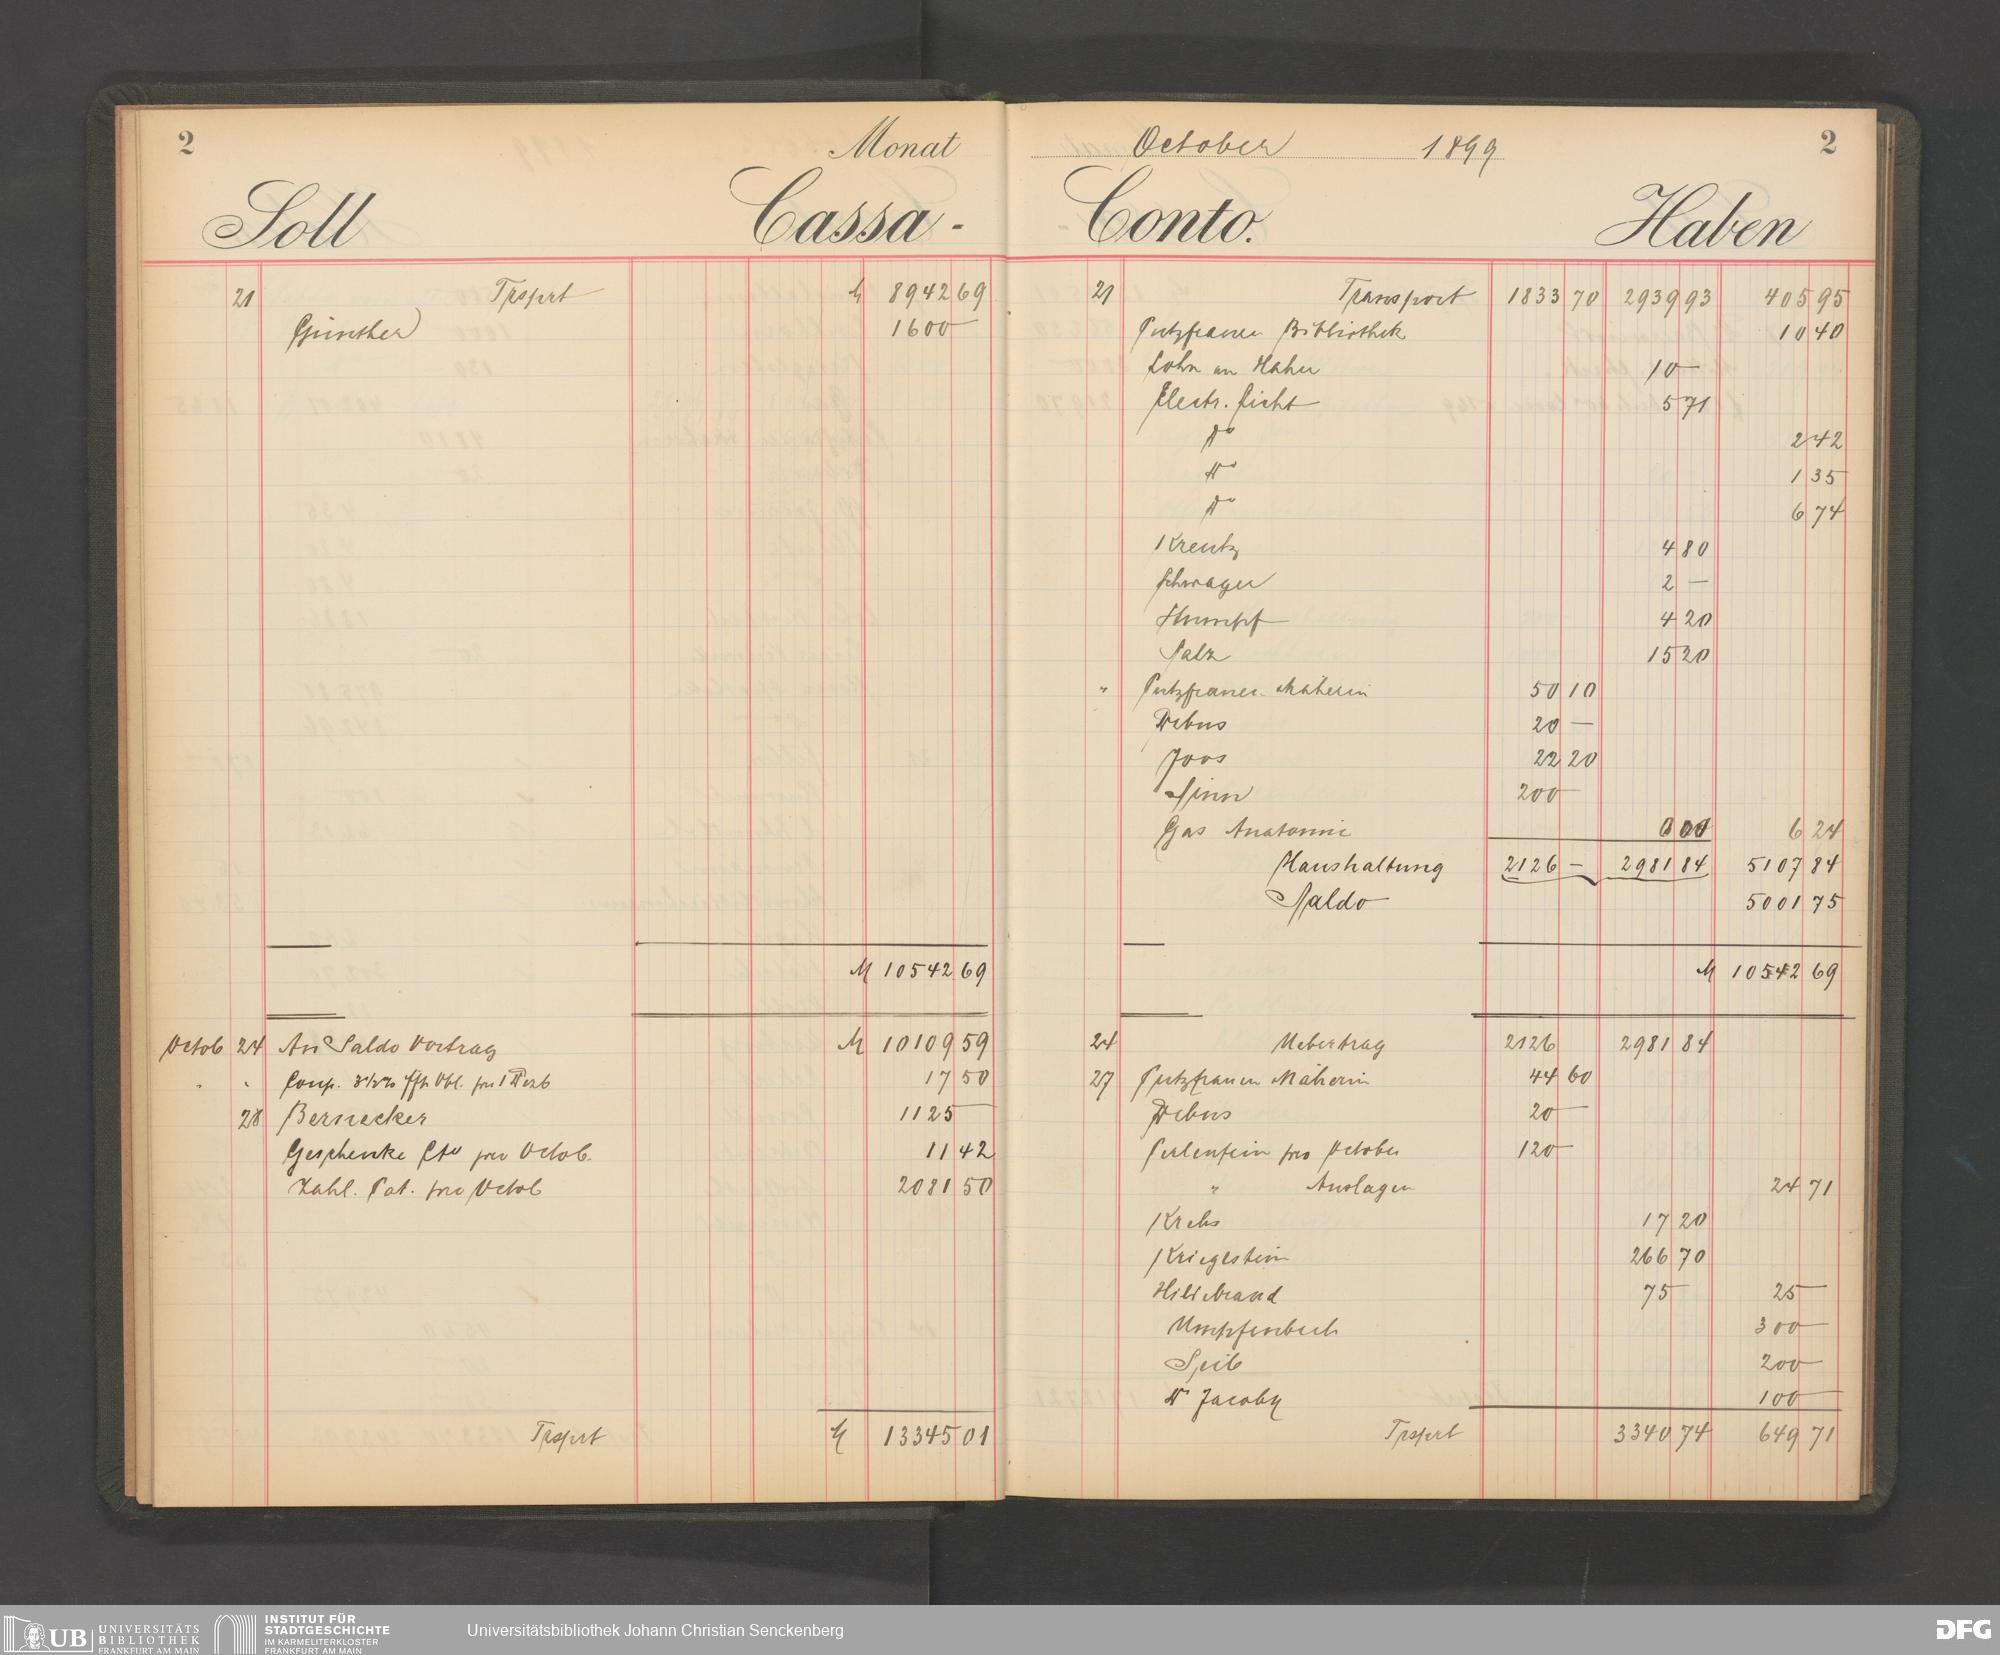 2 Monat
Soll Cassa-
21 Trsprt M 8942 69
Günther 1600 —
M 10542 69
Octob 24 An Saldo Vortrag M 10109 59
" " Coup. 3½% Obl. pro 1 Dezb 17 50
28 Bernecker 1125 —
Geschenke Cto pro Octob. 11 42
Zahl. Pat. pro Octob 2081 50
Trsprt M 13345 01
October 1899 2
Conto. Haben
21 Transport 1833 70 2939 93 405 95
Putzfrauen Bibliothek 10 40
Lohn an Hahn 10 —
Electr. Licht 5 71
do 2 42
do 1 35
do 6 74
Kreutz 4 80
Schwager 2 —
Stumpf 4 20
Salz 15 20
" Putzfrauen Näherin 50 10
Debus 20 —
Joos 22 20
Sinn 200 —
Gas Anatomie 6 24
Haushaltung 2126 — 2981 84 5107 84
Saldo 5001 75
M 10542 69
24 Uebertrag 2126 2981 84
27 Putzfrauen Näherin 44 60
Debus 20 —
Perlenfein pro October 120 —
" Auslagen 24 71
Krebs 17 20
Kriegstein 266 70
Hildebrand 75 — 25 —
Umpfenbach 300 —
Seib 200 —
Dr Jacoby 100 —
Trsprt 3340 74 649 71
UB UNIVERSITÄTS
BIBLIOTHEK
FRANKFURT AM MAIN
INSTITUT FÜR
STADTGESCHICHTE
IM KARMELITERKLOSTER
FRANKFURT AM MAIN
Universitätsbibliothek Johann Christian Senckenberg
DFG